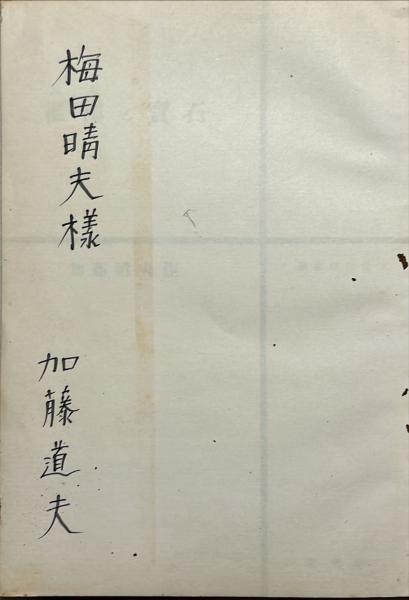 梅田晴夫様
加藤道夫